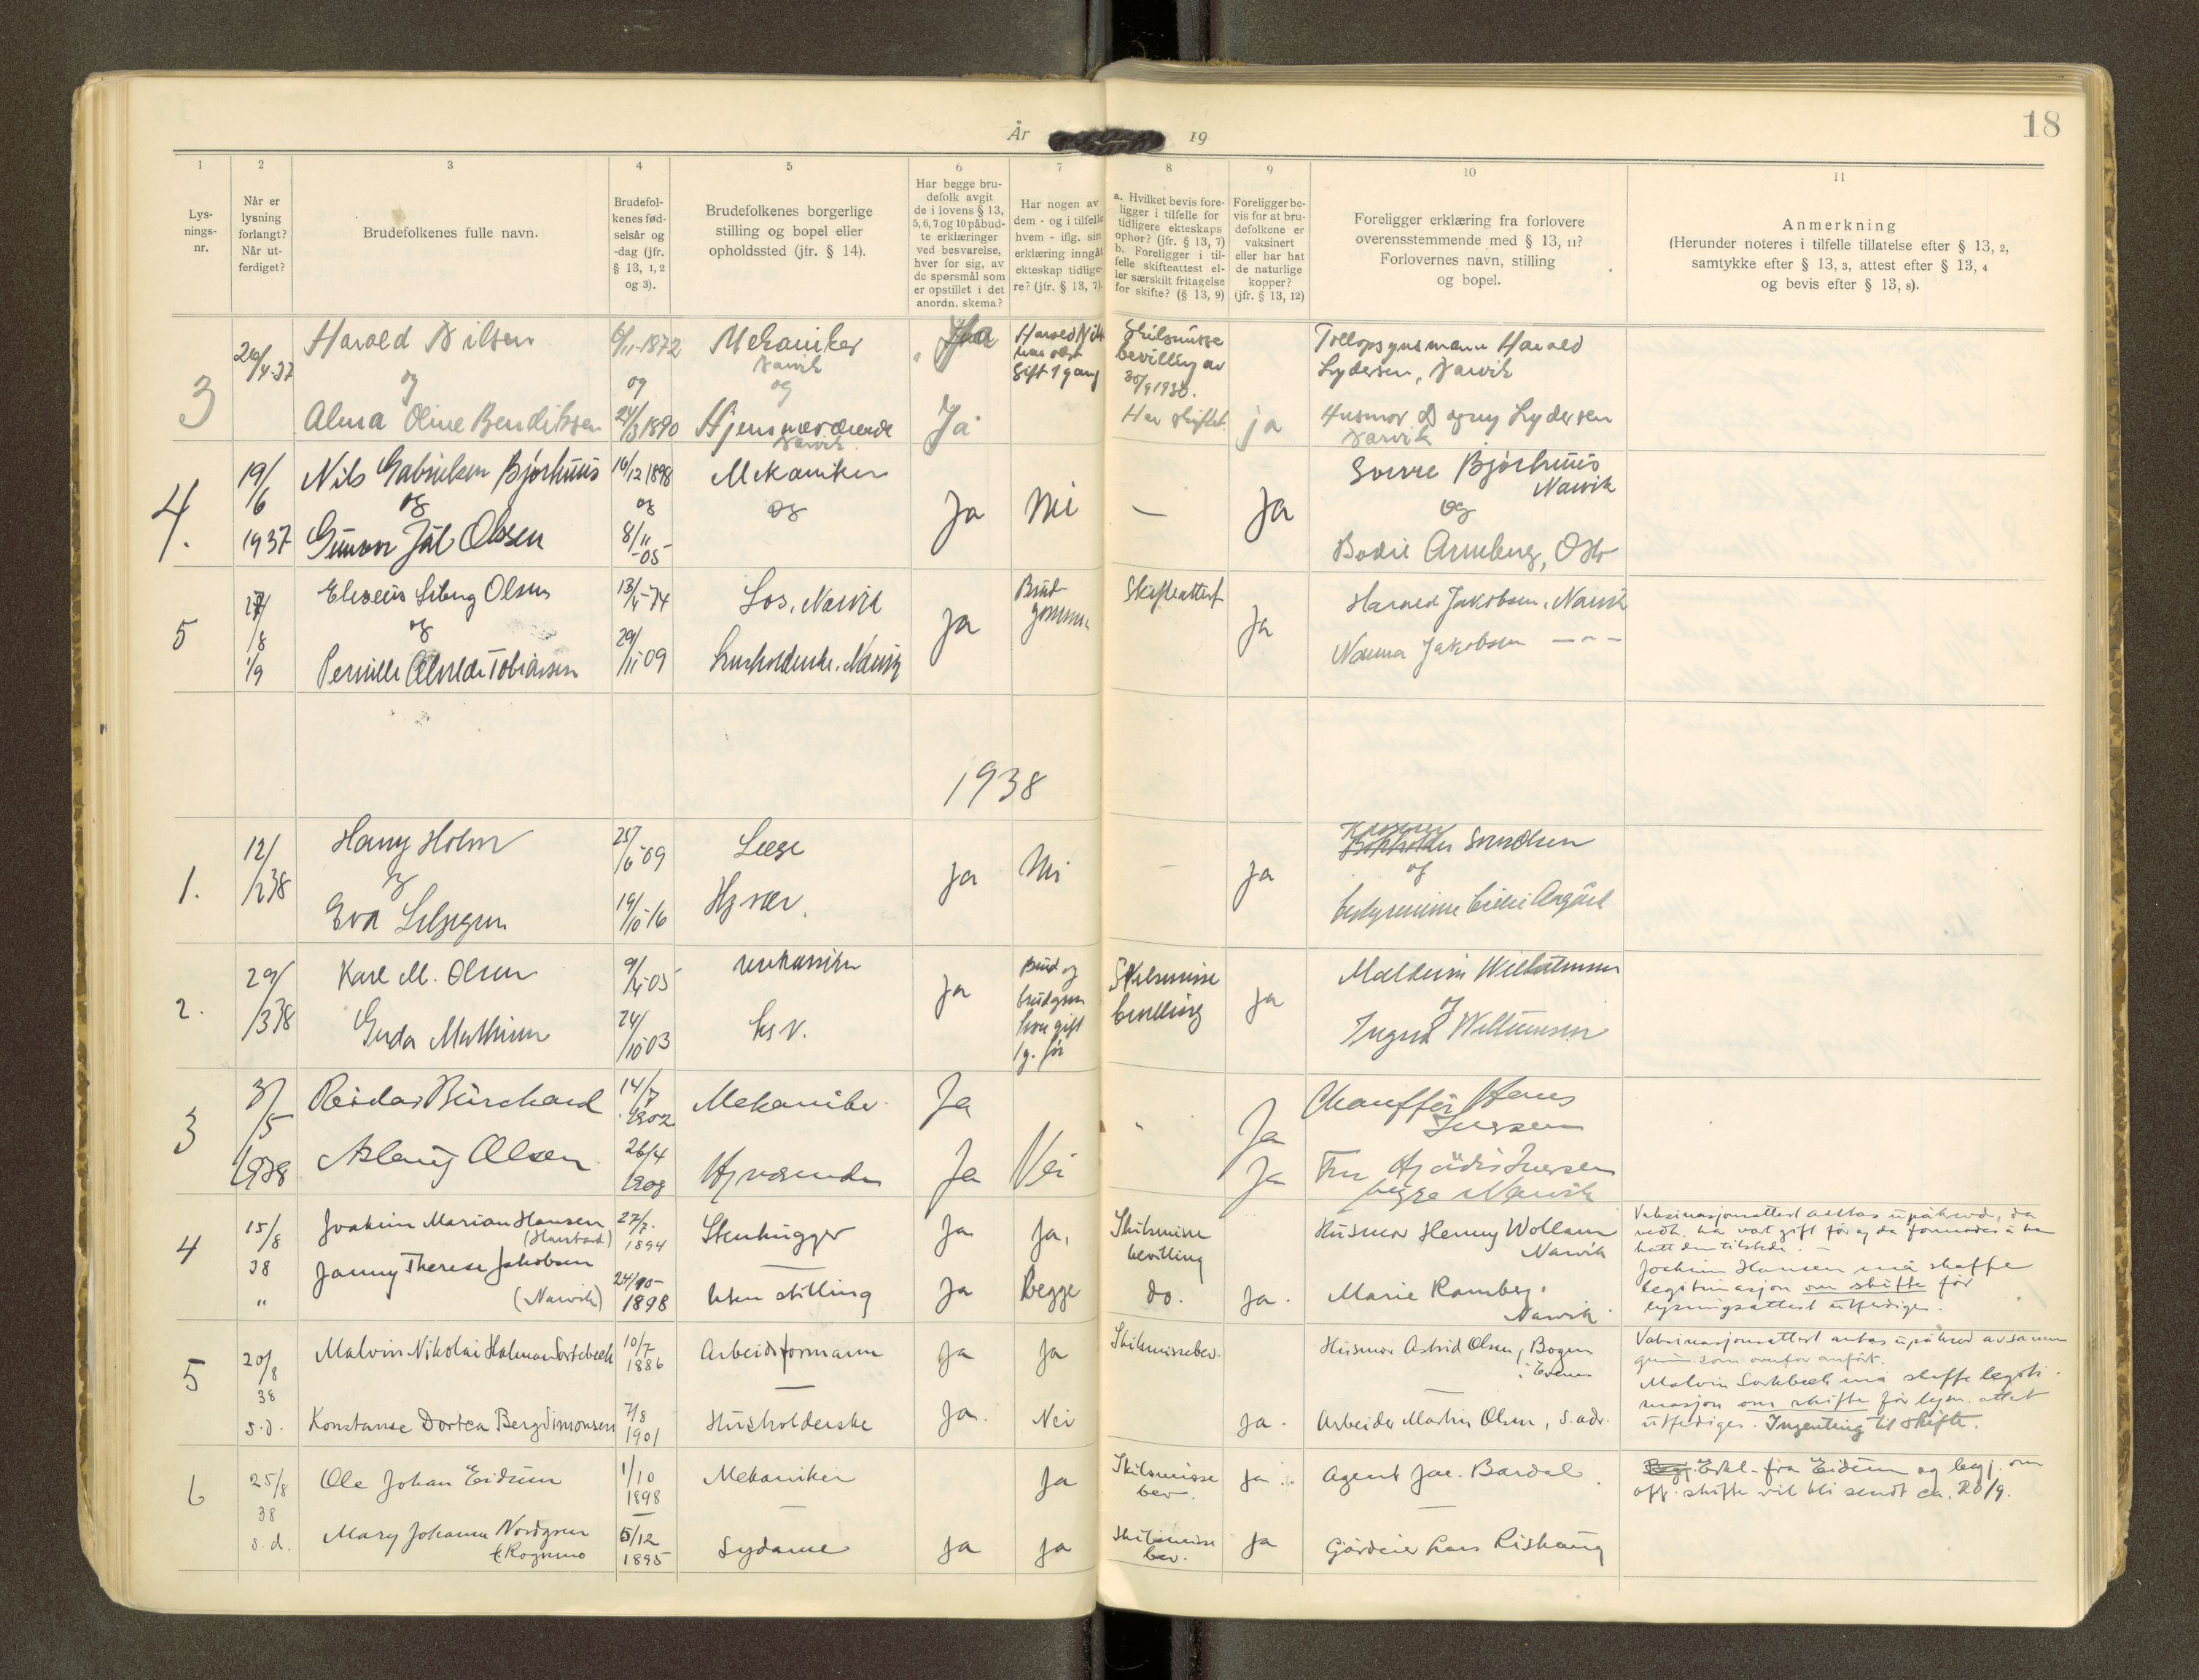 18
År 19
1
2
3
4
5
6
7
8
9
10
11
Lys-
nings-
nr.
Når er
lysning
forlangt?
Når ut-
ferdiget?
Brudefolkenes fulle navn.
Brudefol-
kenes fød-
selsår og
-dag (jfr.
§ 13, 1, 2
og 3).
Brudefolkenes borgerlige
stilling og bopel eller
opholdssted (jfr. § 14).
Har begge bru-
defolk avgit
de i lovens § 13,
5, 6, 7 og 10 påbud-
te erklæringer
ved besvarelse,
hver for sig, av
de spørsmål som
er opstillet i det
anordn. skema?
Har nogen av
dem - og i tilfelle
hvem - iflg. sin
erklæring inngåt
ekteskap tidlige-
re? (jfr. § 13, 7).
a. Hvilket bevis fore-
ligger i tilfelle for
tidligere ekteskaps
ophør? (jfr. § 13, 7)
b. Foreligger i til-
felle skifteattest el-
ler særskilt fritagelse
for skifte? (§ 13, 9)
Foreligger be-
vis for at bru-
defolkene er
vaksinert
eller har hat
de naturlige
kopper?
(jfr. § 13, 12)
Foreligger erklæring fra forlovere
overensstemmende med § 13, 11?
Forlovernes navn, stilling
og bopel.
Anmerkning
(Herunder noteres i tilfelle tillatelse efter § 13, 2,
samtykke efter § 13, 3, attest efter § 13, 4
og bevis efter § 13, 8).
3
Harald Nilsen
og
Alma Oline Bendiksen
6/11-1872
og
1890
Mekaniker
Narvik
og
Hjemmeværende
Narvik
Ja
Ja
gift 1 gang
Skilsmisse
bevilling av
30/9 1930.
Har skiftet
ja
Tollopsynsmann Harald
Lydersen, Narvik
Husmor Dagny Lydersen
Narvik
4.
19/
6
1937
Nils Gabrielsen Bjørhuus
og
Gunvor Juul Olsen
16/12 1898
og
8/11
-05
Mekaniker
og
Ja
Nei
—
Ja
Sverre Bjørhuus
Narvik
og
Bodil Armberg, Oslo
5
/8
1/9
Eliseus Liberg Olsen
og
Pernille Alvilde Tobiassen
13/4-74
29/11-09
Los, Narvik
Husholderske, Narvik
Ja
Brud-
gommen
Skifteattest
Ja
Harald Jakobsen, Narvik
Nanna Jakobsen — " —
1938
1.
12/
/2 38
Harry Holm
og
Eva
25/6-09
19/10-16
Læge
Hj. vær.
Ja
Nei
—
Ja
Kasserer
Svendsen
og
bestyrerinne
2.
29/
/3 38
Karl M. Olsen
Gerda Mathisen
9/4-05
24/10-03
mekaniker
hj. v.
Ja
Brud og
brudgom
har gift
1 g. før
Skilsmisse
bevilling
Ja
Willumsen
og
Ingrid Willumsen
3
3/
/5
1938
Reidar Burchard
Aslaug Olsen
14/7
1902
26/4
1908
Mekaniker
Hj. værende
Ja
Ja
Nei
"
Ja
Ja
Chauffør Hans
Iversen
Fru Hjördis Iversen
begge Narvik
4
15/8
38
"
Joakim Marian Hansen
(Harstad)
Janny Therese Jakobsen
(Narvik)
27/7.
1894
1898
Stenhugger
—
Uten stilling
Ja
Ja
Ja,
Begge
Skilsmisse
bevilling
do.
Ja.
Husmor Henny Wollann
Narvik
Marie Ramberg,
Narvik
Vaksinasjonsattest antas upåkrevd, da
vedk. har vært gift før og da formodes å ha
hatt den tilstede. —
Joakim Hansen må skaffe
legitimasjon om skifte før
lysningsattest utferdiges.
5
20/8
38
s.d.
Malvin Nikolai Halmar Sortebech
Konstanse Dortea Berg Simonsen
10/7
1886
7/8
1901
Arbeidsformann
—
Husholderske
Ja
Ja.
Ja
Nei
Skilsmissebev.
Ja.
Husmor Astrid Olsen, Bogen
i Evenes
—
Arbeider Martin Olsen, s. adr.
Vaksinasjonsattest antas upåkrevd av samme
grunn som ovenfor anført.
Malvin Sortebech må skaffe legiti-
masjon om skifte før lysn. attest
utferdiges. Ingenting til skifte.
6
25/8
38
s.d.
Ole Johan Eidum
Mary Johanna Nordgren
f. Rognmo
1/10
1898
—
5/12
1895
Mekaniker
—
Sydame
Ja
Ja
Ja
Skilsmisse
bev.
Skilsmisse
bev.
Ja
Ja
Agent Jac. Bardal
—
Gårdeier Lars Rishaug
Erkl. fra Eidum og begj. om
off. skifte vil bli sendt ca. 20/9.